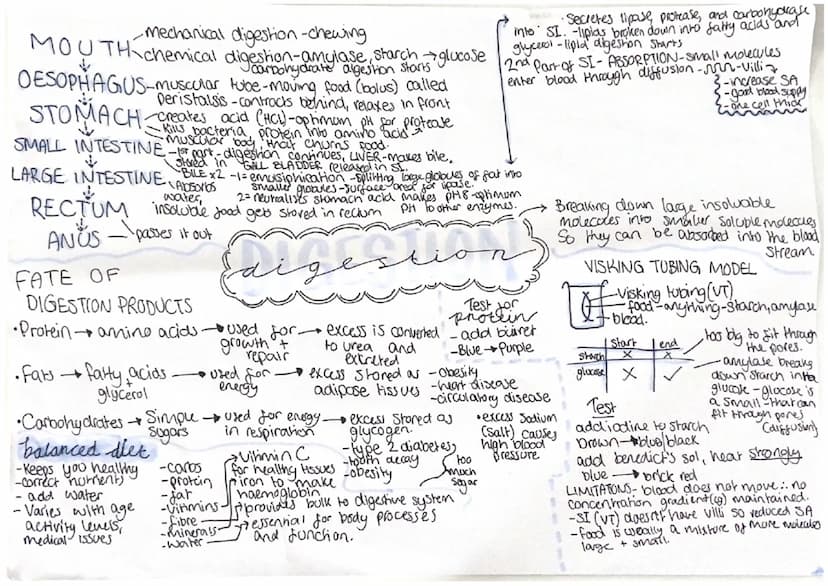 MOUTH
mechanical digestion - chewing
chemical digestion - amylase, starch → glucose
carbohydrate digestion starts
OESOPHAGUS - muscular tube - moving food (bolus) called
peristalsis - contracts behind, relaxes in front
STOMACH - creates acid (HCL) - optimum pH for protease
kills bacteria, protein into amino acids
muscular body, that churns food.
SMALL INTESTINE - 1st part - digestion continues, LIVER - makes bile.
stored in GALL BLADDER released in SI.
BILE x2 - 1 = emulsification - splitting large globules of fat into
smaller globules - surface area for lipase.
2 = neutralises stomach acid makes pH8 - optimum
pH to other enzymes.
LARGE INTESTINE
Absorbs
water,
RECTUM
insoluble food gets stored in rectum
ANUS - passes it out
Secretes lipase, protease, and carbohydrase
into SI. - lipids broken down into fatty acids and
glycerol - lipid digestion starts
2nd Part of SI - ABSORPTION - small molecules
enter blood through diffusion - villi
- increase SA
- good blood supply
- one cell thick
DIGESTION
digestion
Breaking down large insoluable
molecules into smaller soluble molecules
So they can be absorbed into the blood
stream
FATE OF
DIGESTION PRODUCTS
• Protein → amino acids → used for growth + repair → excess is converted to urea and excreted
• Fats → fatty acids + glycerol → used for energy → excess stored as adipose tissues
- obesity
- heart disease
- circulatory disease
• Carbohydrates → Simple sugars → used for energy in respiration → excess stored as glycogen.
- type 2 diabetes
- tooth decay
- obesity
too
much
sugar
• excess sodium
(salt) causes
high blood
pressure.
Test for
protein
- add biuret
- Blue → Purple
balanced diet
- keeps you healthy
- correct nutrients
- add water
- Varies with age
activity levels,
medical issues
- carbs
- protein
- fat
- vitimins
- fibre
- minerals
- water
vitimin C
for healthy tissues
iron to make
haemoglobin
provides bulk to digestive system
essential for body processes
and function.
VISKING TUBING MODEL
Visking tubing (VT)
food - anything - starch, amylase
blood.
start end
starch X X
glucose X ✓
too big to fit through
the pores.
amylase breaks
down starch into
glucose - glucose is
a small - that can
fit through pores
(diffusion)
Test
add iodine to starch
brown → blue/black
add benedict's sol, heat strongly
blue → brick red
LIMITATIONS - blood does not move ∴ no
concentration gradient(g) maintained.
- SI (VT) doesn't have villi so reduced SA
- food is usually a mixture of more molecules
large + small.